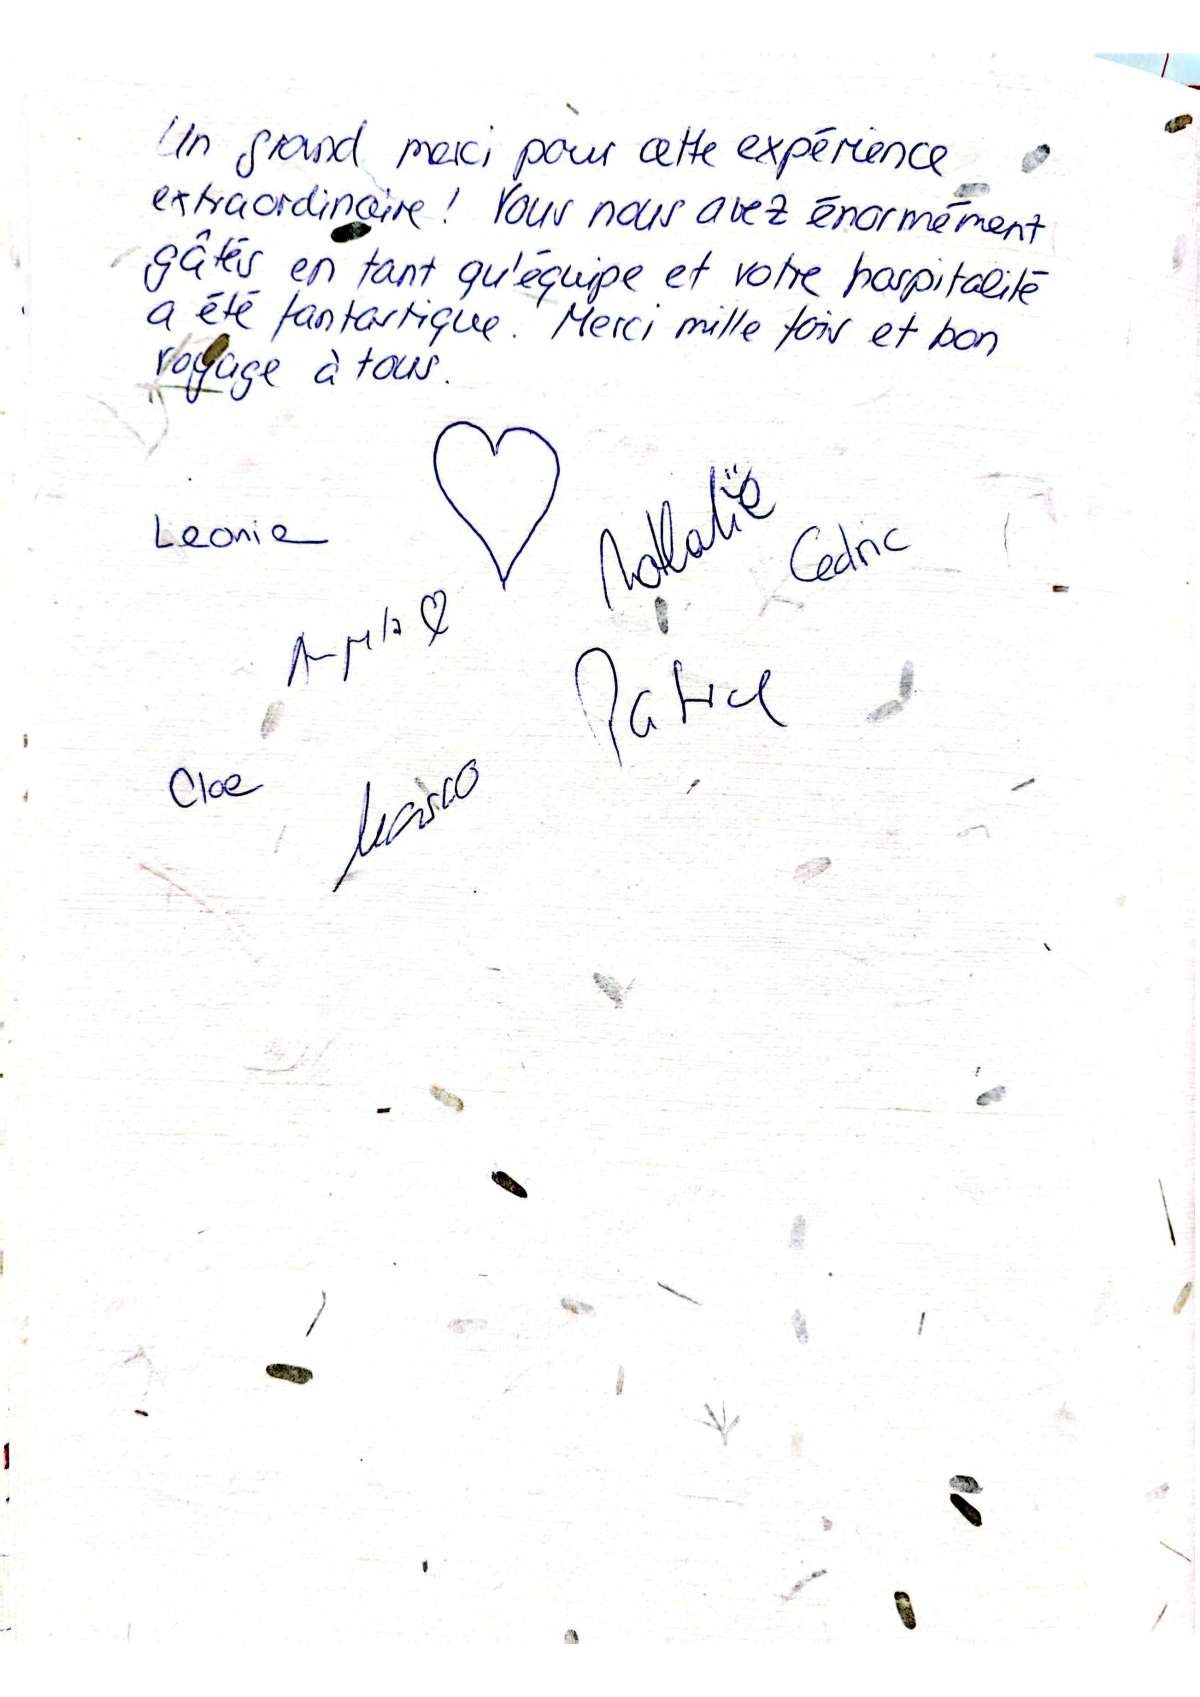 Un grand merci pour cette expérience
extraordinaire! Vous nous avez énormément
gâtés en tant qu'équipe et votre hospitalité
a été fantastique. Merci mille fois et bon
voyage à tous.
Leonie
Nathalie
Cedric
Angela
Patrick
Cloe